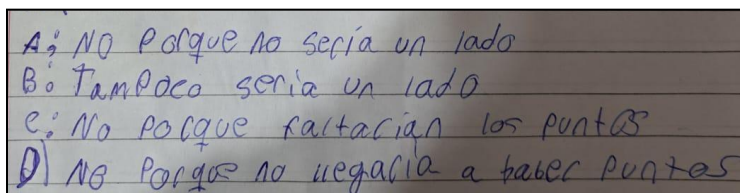 A: NO Porque no seria un lado
B: Tampoco seria un lado
C: No Porque faltarian los puntos
D) No Porque no llegaria a haber puntos